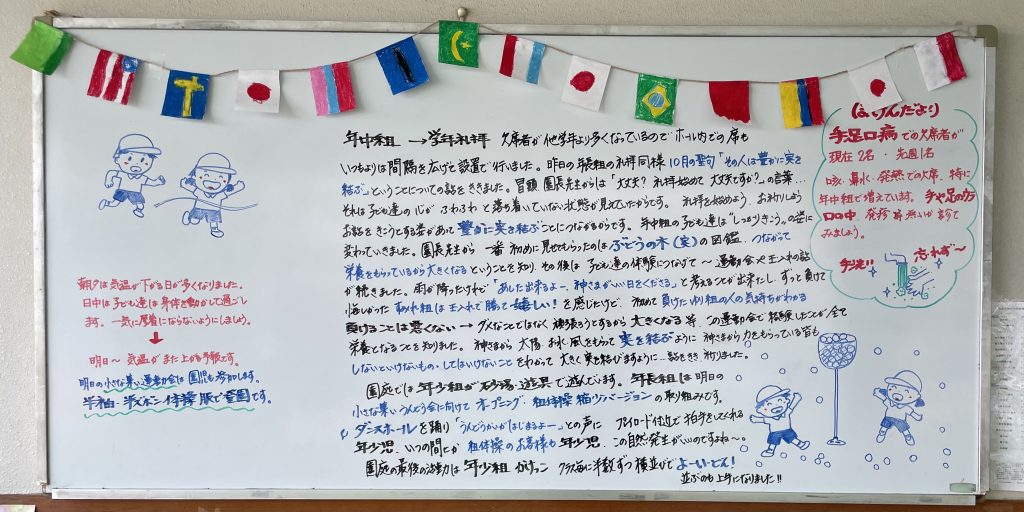 朝夕は気温が下がる日が多くなりました。
日中は子ども達は身体を動かして過ごし
ます。一気に厚着にならないようにしましょう。
明日〜 気温がまた上がる予報です。
明日の小さな集い運動会は園児も参加します。
半袖・半ズボン 体操服で登園です。
年中組 → 学年礼拝 欠席者が他学年より多くなっているのでホール内での席も
いつもよりは間隔を広げて設置で行いました。昨日の年長組の礼拝同様 10月の聖句「その人は豊かに実を
結ぶ」ということについての話をききました。冒頭 園長先生からは「大丈夫? 礼拝始めて大丈夫ですか?」の言葉…
それは子ども達の心が ふわふわと落ち着いていない状態が見えていたからです。 礼拝を始めよう、お祈りしよう
お話をきこうとする姿があって 豊かに実を結ぶことにつながるからです。年中組の子ども達は"しっかりきこう"の姿に
変わっていきました。園長先生から 一番初めに見せてもらったのは ぶどうの木(実)の図鑑 つながって
栄養をもらっているから大きくなるということを知り、その後は 子ども達の体験につなげて〜運動会や玉入れの話
が続きました。雨が降ったけれど「あした出来るよー、神さまがいい日をくださる」と考えることが出来たし、ずっと負けて
悔しかった 組は玉入れで勝って嬉しい!を感じたけど、初めて負けたゆり組の人の気持ちがわかる
負けることは悪くない → ダメなことではなく 頑張ろうとするから 大きくなる等、この運動会で経験したことが全て
栄養となることを知りました。神さまから 太陽 お水 風をもらって 実を結ぶように 神さまから力をもらっている皆も
しないといけないもの・してはいけないことをわかって 大きく実を結びますように…話をきき 祈りました。
園庭では 年少組が砂場・遊具で遊んでいます。年長組は明日の
小さな集いうんどう会に向けて オープニング、組体操 縮少バージョンの取り組みです。
ダンスホールを踊り「うんどうかいがはじまるよー」との声に 付近で拍手をしてくれる
年少児、いつの間にか 組体操のお客様も年少児、この自然発生がいいのですよね〜。
園庭の最後の活動は 年少組 かけっこ クラス毎に半数ずつ横並びで よーいどん!
並ぶのも上手になりました!!
ほけんだより
手足口病での欠席者が
現在2名・先週1名
咳・鼻水・発熱での欠席、特に
年中組で増えています。手や足のうら
口の中、発疹等無いか診て
みましょう。
手洗い 忘れず〜